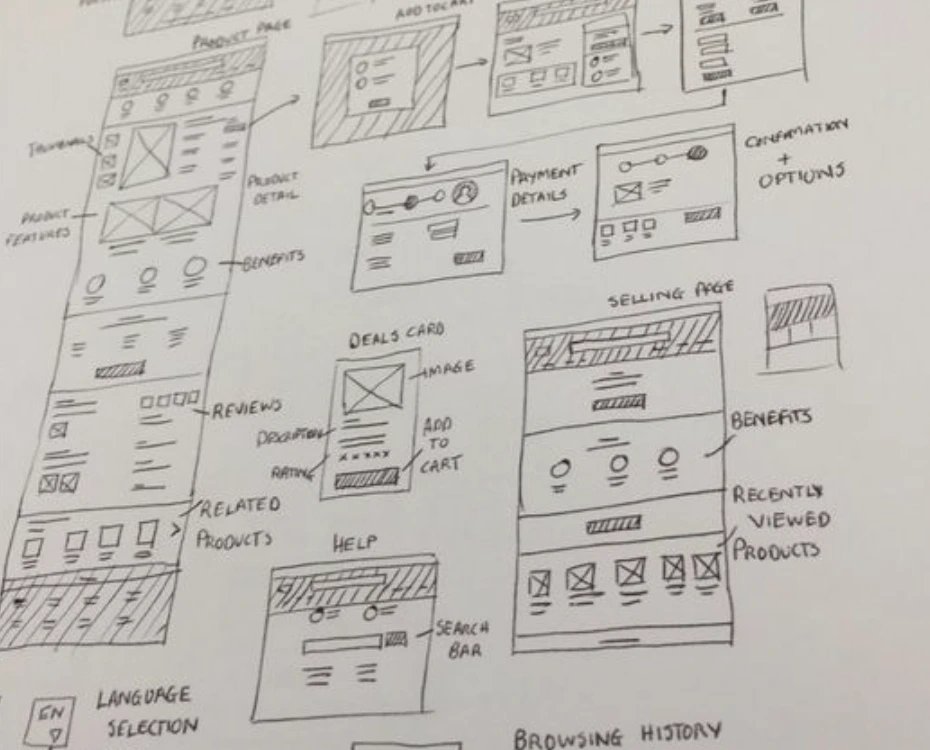 PRODUCT PAGE
ADD TO CART
THUMBNAILS
PRODUCT
DETAIL
PRODUCT
FEATURES
BENEFITS
REVIEWS
RELATED
PRODUCTS
PAYMENT
DETAILS
CONFIRMATION
+
OPTIONS
DEALS CARD
IMAGE
DESCRIPTION
RATING
ADD
TO
CART
SELLING PAGE
BENEFITS
RECENTLY
VIEWED
PRODUCTS
HELP
SEARCH
BAR
EN
LANGUAGE
SELECTION
BROWSING HISTORY